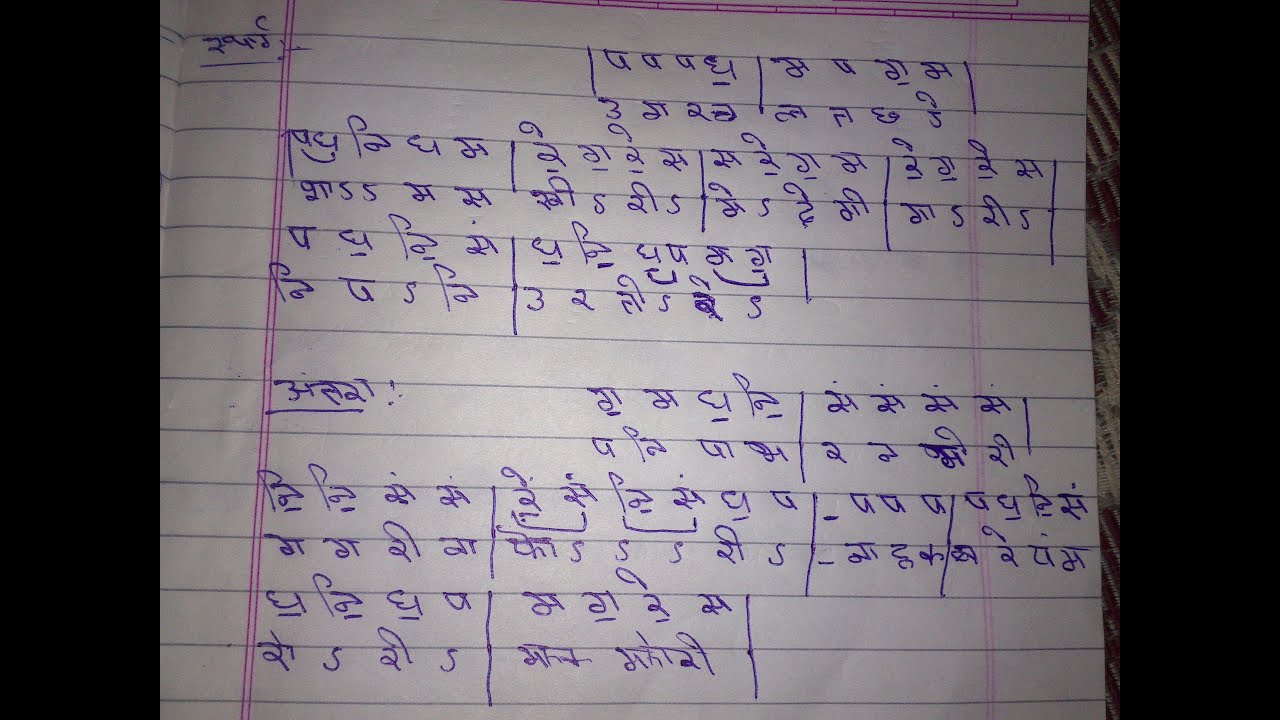 स्थाई :-
प प प ध॒ | म प ग॒ म
ड ग र च ल त छे ड़े
प ध॒ नि ध म | रे॒ ग॒ रे॒ स | स रे॒ ग॒ म | रे॒ ग॒ रे॒ स
शा ऽ ऽ म स खी ऽ री ऽ | मे ऽ दे गी गा ऽ री ऽ
प ध॒ नि॒ सं | ध॒ नि॒ ध प म ग॒
नि प ऽ नि | ड र तो ऽ रे ऽ
अंतरा :
ग॒ म ध॒ नि॒ | सं सं सं सं
प नि घा भ र न
नि॒ नि॒ सं सं | रें॒ सं नि॒ सं ध॒ प | - प प प | प ध॒ नि॒ सं
ग ग री मा फो ऽ ऽ ऽ री ऽ | -
ध॒ नि॒ ध॒ प | म ग॒ रे॒ स
रो ऽ री ऽ